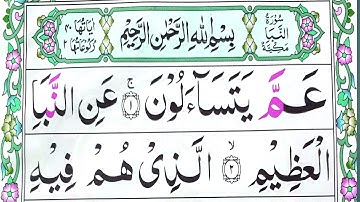 سُوْرَةُ النَّبَاِ مَكِّيَّةٌ
بِسْمِ اللّٰهِ الرَّحْمٰنِ الرَّحِيْمِ
اٰيَاتُهَا ٤٠ رُكُوْعَاتُهَا ٢
عَمَّ يَتَسَآءَلُوْنَ ۚ ۝١ عَنِ النَّبَاِ
الْعَظِيْمِ ۙ ۝٢ الَّذِىْ هُمْ فِيْهِ